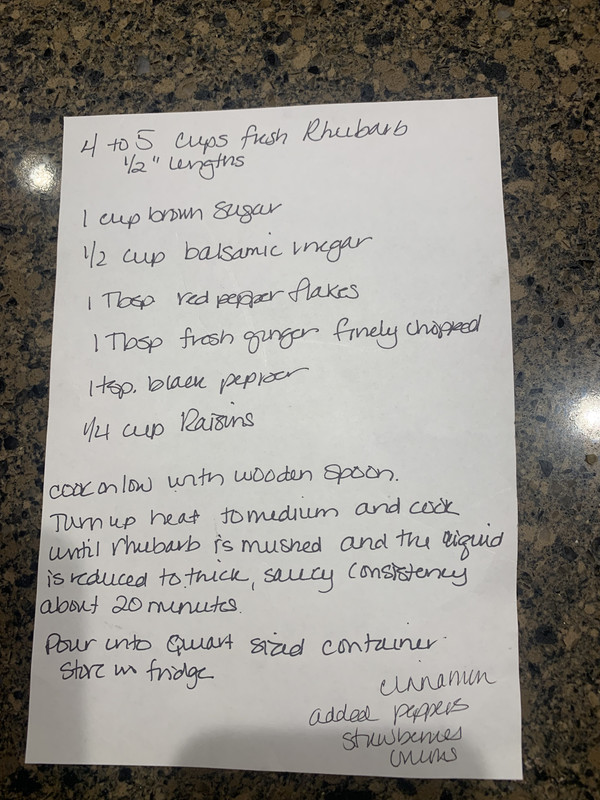 4 to 5 cups fresh Rhubarb
1/2" lengths
1 cup brown sugar
1/2 cup balsamic vinegar
1 Tbsp red pepper flakes
1 Tbsp fresh ginger finely chopped
1 tsp. black pepper
1/4 cup Raisins
cook on low with wooden spoon.
Turn up heat to medium and cook
until rhubarb is mushed and the liquid
is reduced to thick, saucy consistency
about 20 minutes.
Pour into Quart sized container.
Store in fridge
cinnamon
added peppers
strawberries
onions